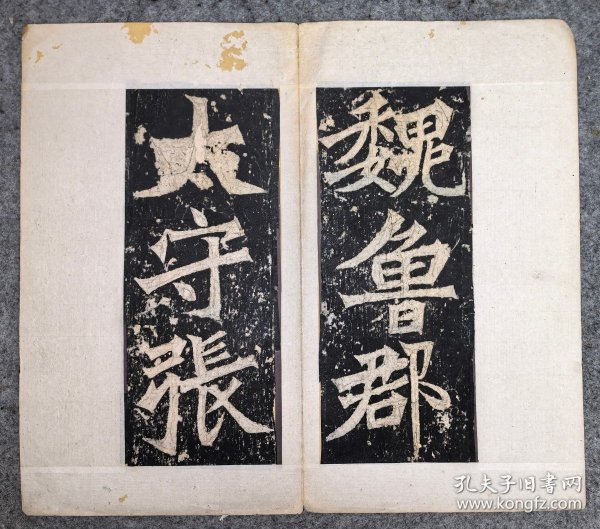 魏魯郡
太守張
孔夫子旧书网
www.kongfz.com